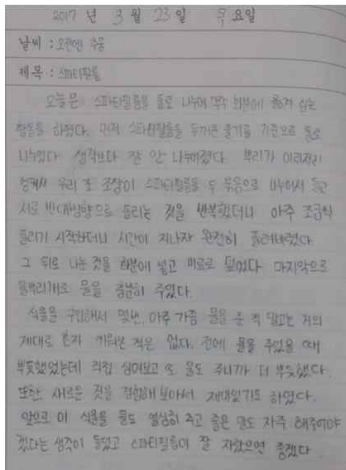 2017 년 3 월 23 일 목 요일
날씨 : 오전엔 추움
제목 : 스파티필름
오늘은 스파티필름을 둘로 나누어 각각 화분에 옮겨 심는
활동을 하였다. 먼저 스파티필름을 두꺼운 줄기를 기준으로 둘로
나누었다. 생각보다 잘 안 나누어졌다. 뿌리가 이리저리
엉켜서 우리 조 조장이 스파티필름을 두 묶음으로 나누어서 들고
서로 반대방향으로 돌리는 것을 반복했더니 아주 조금씩
풀리기 시작하더니 시간이 지나자 완전히 풀려버렸다.
그 뒤로 나눈 것을 화분에 넣고 비료로 덮었다. 마지막으로
물뿌리개로 물을 충분히 주었다.
식물을 구입해서 몇번, 아주 가끔 물을 준 적 말고는 거의
제대로 혼자 키워본 적은 없다. 전에 물을 주었을 때
뿌듯했었는데 직접 심어보고 또 물도 주니까 더 뿌듯했다.
또한 새로운 것을 경험해 보아서 재미있기도 하였다.
앞으로 이 식물을 물도 열심히 주고 좋은 말도 자주 해주어야
겠다는 생각이 들었고 스파티필름이 잘 자랐으면 좋겠다.